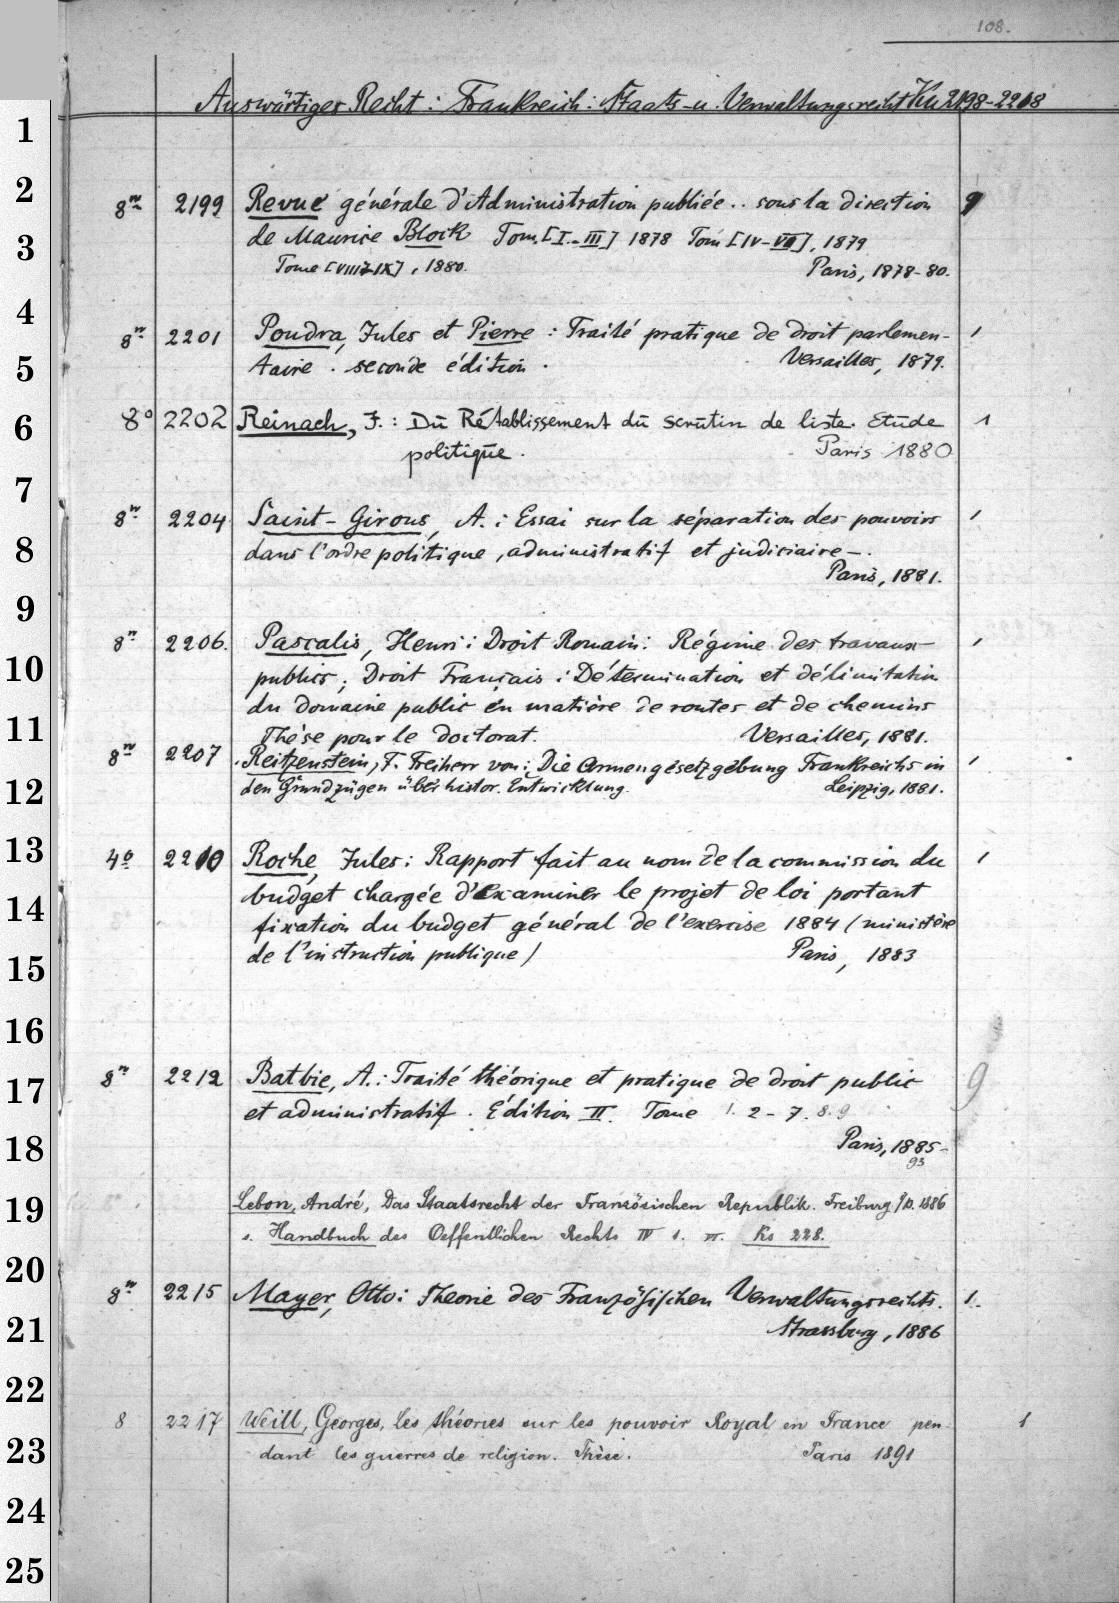 108.
Auswärtiger Recht: Frankreich: Staats- u. Verwaltungsrecht Ku 2198-2218
1
2
8º 2199 Revue générale d'Administration publiée .. sous la direction 9
3
de Maurice Block Tom. [I-III] 1878 Tom [IV-VII], 1879
Tome [VIII-IX], 1880. Paris, 1878-80.
4
8º 2201 Poudra, Jules et Pierre : Traité pratique de droit parlemen- 1
5
taire . seconde édition . Versailles, 1879.
6
8º 2202 Reinach, J. : Du Rétablissement du scrutin de liste. Etude 1
politique . Paris 1880
7
8º 2204 Saint-Girons, A. : Essai sur la séparation des pouvoirs 1
8
dans l'ordre politique, administratif et judiciaire - .
Paris, 1881.
9
8º 2206. Pascalis, Henri : Droit Romain : Régime des travaux 1
10
publics ; Droit Français : Détermination et délimitation
11
du domaine public en matière de routes et de chemins
Thèse pour le doctorat. Versailles, 1881.
8º 2207 Reitzenstein, F. Freiherr von : Die Armengesetzgebung Frankreichs in 1
12
den Grundzügen über histor. Entwicklung. Leipzig, 1881.
13
4º 2210 Roche, Jules : Rapport fait au nom de la commission du 1
14
budget chargée d'examiner le projet de loi portant
fixation du budget général de l'exercise 1884 (ministère
15
de l'instruction publique) Paris, 1883
16
17
8º 2212 Batbie, A. : Traité théorique et pratique de droit public 9
et administratif . Édition II. Tome 1. 2 - 7. 8. 9
18
Paris, 1885-
93
19
Lebon, André, Das Staatsrecht der Französischen Republik. Freiburg /B. 1886
s. Handbuch des Oeffentlichen Rechts IV 1. VI. Ks 228.
20
8º 2215 Mayer, Otto : Theorie des Französischen Verwaltungsrechts. 1.
21
Strassburg, 1886
22
8 2217 Weill, Georges, Les théories sur les pouvoir Royal en France pen- 1
23
dant les guerres de religion. Thèse. Paris 1891
24
25